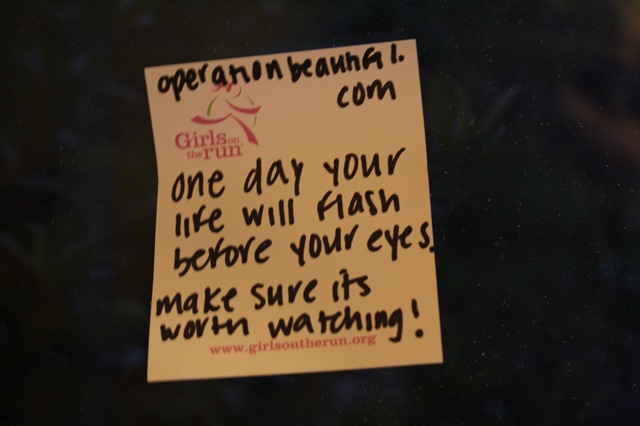 operationbeautiful.
com
Girls on
the run
one day your
life will flash
before your eyes.
make sure its
worth watching!
www.girlsontherun.org